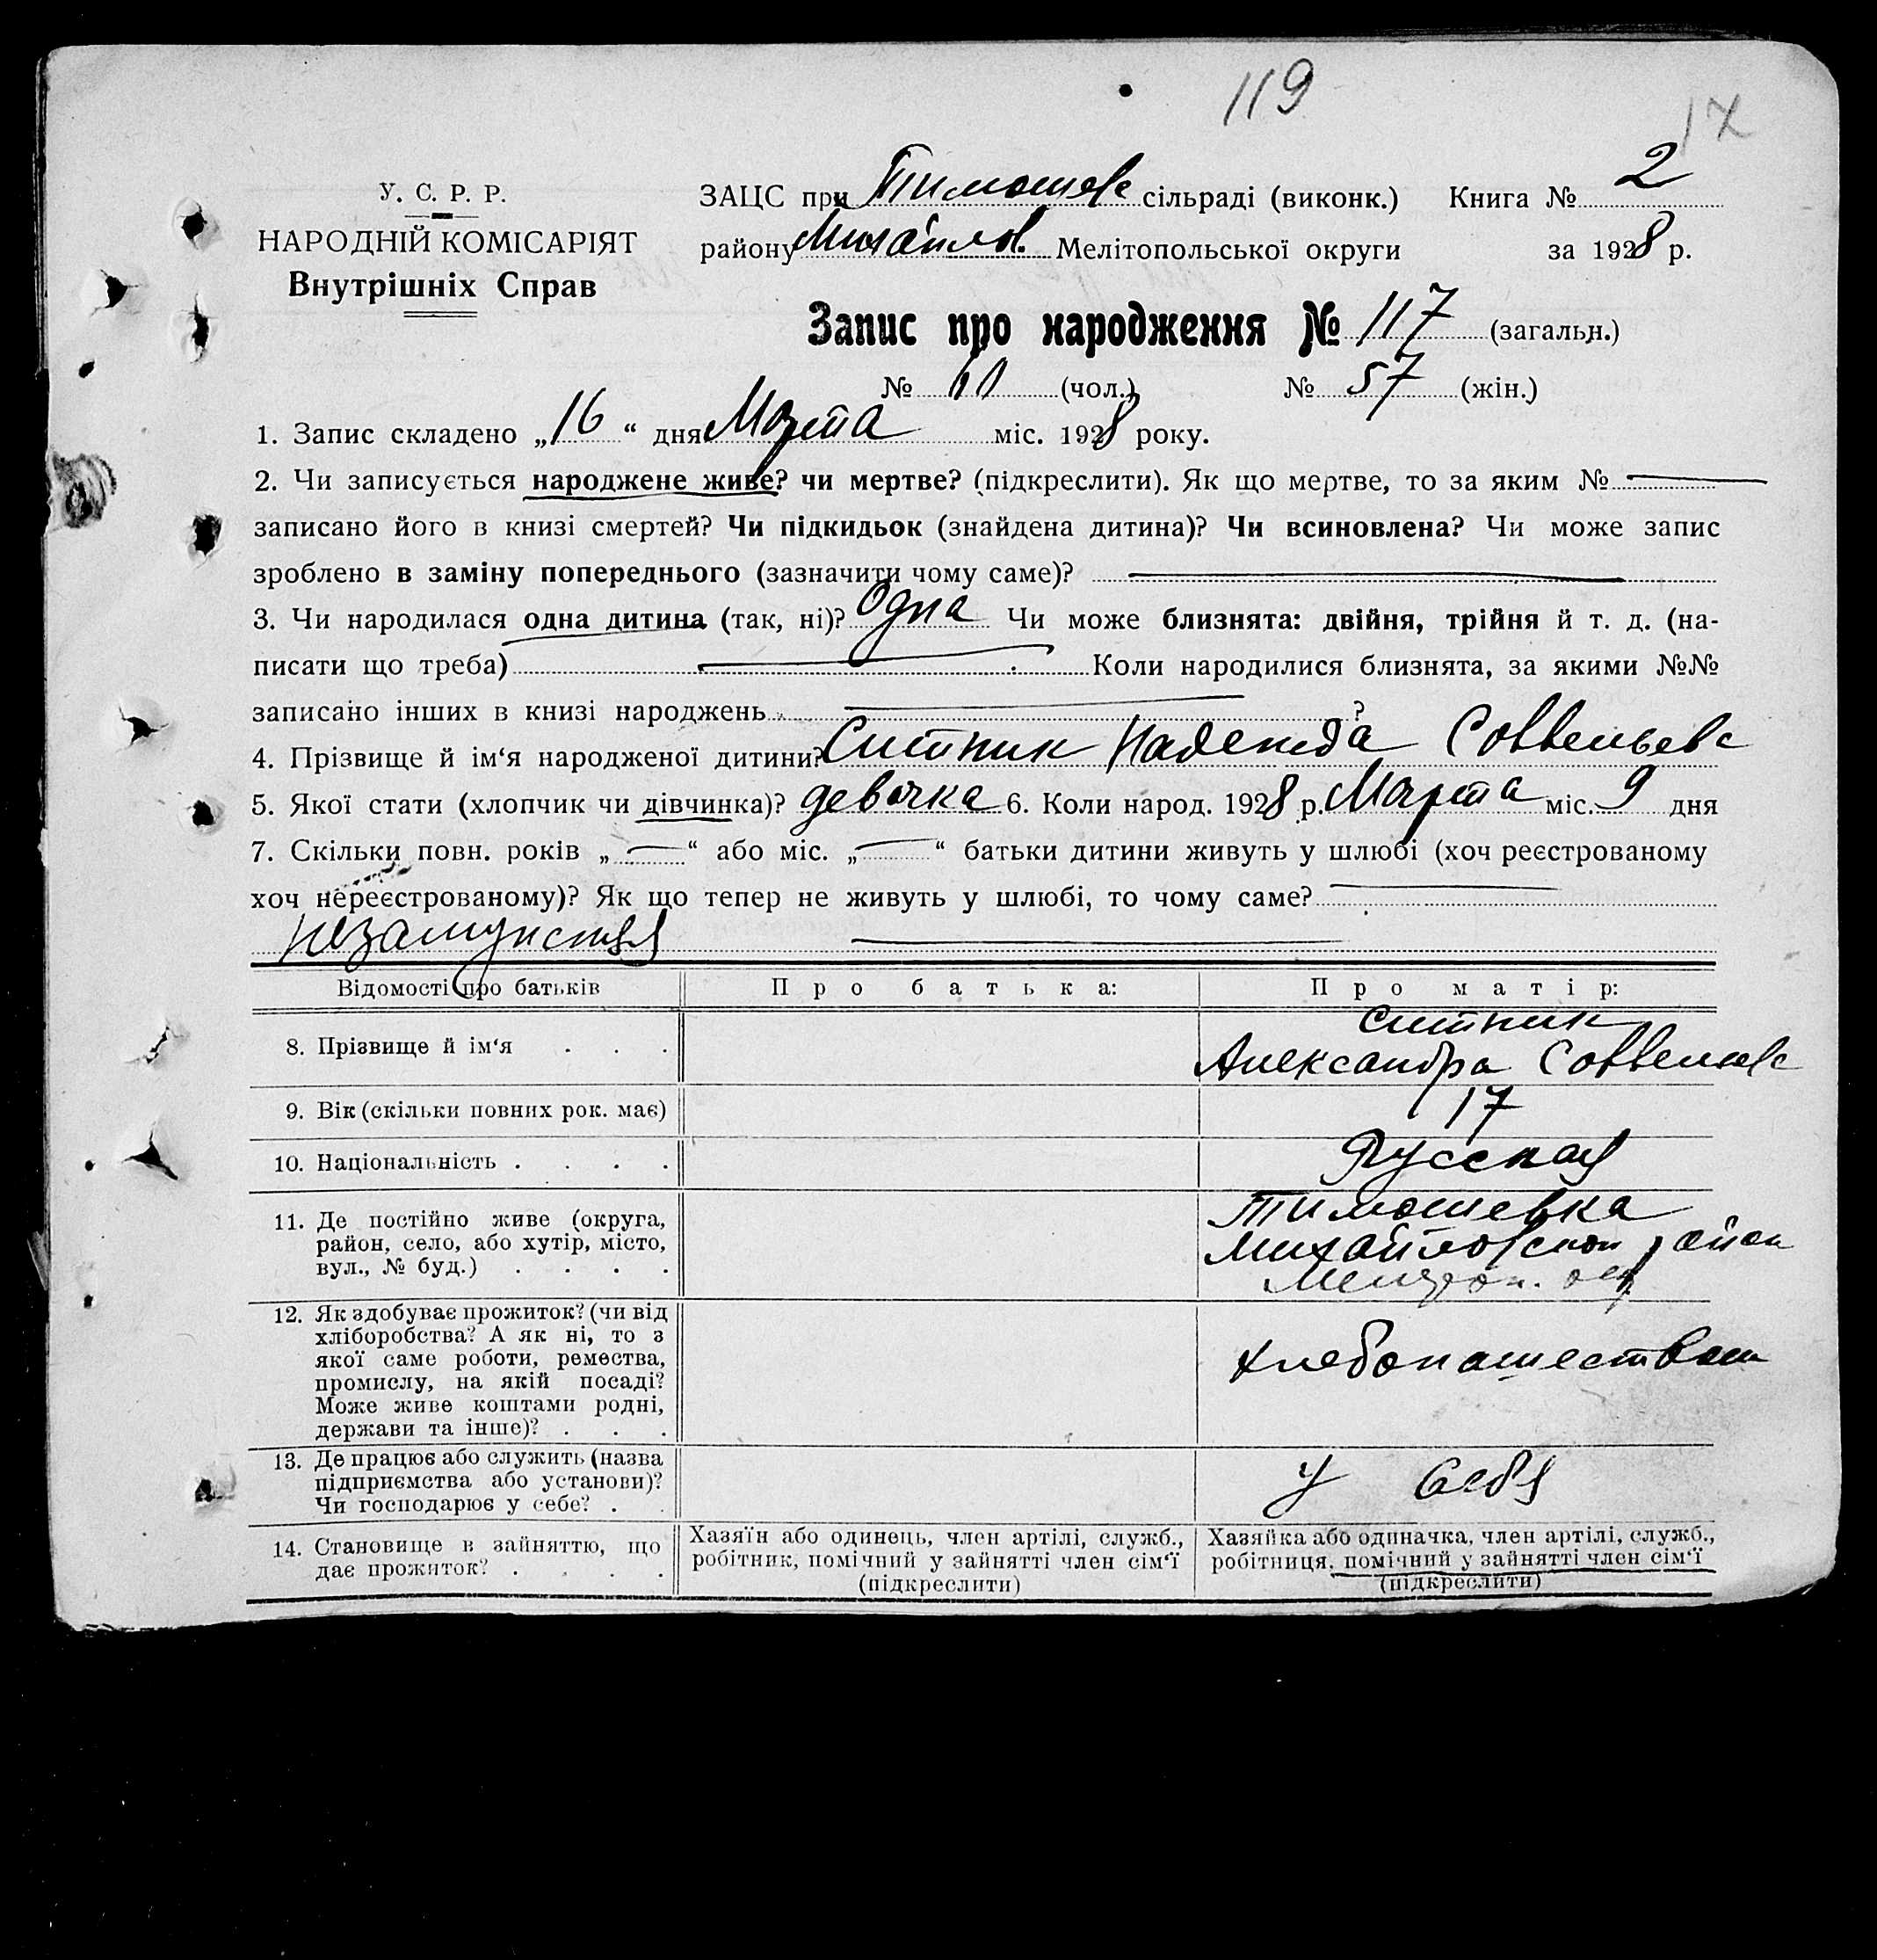 119
17
У. С. Р. Р.
НАРОДНІЙ КОМІСАРІЯТ
Внутрішніх Справ
ЗАЦС при Тимошевс сільраді (виконк.) Книга № 2
району Михайлов. Мелітопольської округи за 1928 р.
Запис про народження № 117 (загальн.)
№ 60 (чол.) № 57 (жін.)
1. Запис складено „16“ дня Марта міс. 1928 року.
2. Чи записується народжене живе? чи мертве? (підкреслити). Як що мертве, то за яким №
записано його в книзі смертей? Чи підкидьок (знайдена дитина)? Чи всиновлена? Чи може запис
зроблено в заміну попереднього (зазначити чому саме)?
3. Чи народилася одна дитина (так, ні)? Одна Чи може близнята: двійня, трійня й т. д. (на-
писати що треба) Коли народилися близнята, за якими №№
записано інших в книзі народжень ?
4. Прізвище й ім‘я народженої дитини? Ситник Надежда Соввельевс
5. Якої стати (хлопчик чи дівчинка)? девочка 6. Коли народ. 1928 р. Марта міс. 9 дня
7. Скільки повн. років „—“ або міс. „—“ батьки дитини живуть у шлюбі (хоч реєстрованому
хоч нереєстрованому)? Як що тепер не живуть у шлюбі, то чому саме?
Відомості про батьків Про батька: Про матір:
8. Прізвище й ім‘я . . . Ситник
Александра Соввельевс
9. Вік (скільки повних рок. має) 17
10. Національність . . . . Русская
11. Де постійно живе (округа,
район, село, або хутір, місто,
вул., № буд.) . . . .
Тимошевка
Михайловскои район
Мелитоп. окр
12. Як здобуває прожиток? (чи від
хліборобства? А як ні, то з
якої саме роботи, ремества,
промислу, на якій посаді?
Може живе коштами родні,
держави та інше)? . . .
хлебопашеством
13. Де працює або служить (назва
підприємства або установи)?
Чи господарює у себе? . .
У себя
14. Становище в зайняттю, що
дає прожиток? . . . .
Хазяїн або одинець, член артілі, служб.,
робітник, помічний у зайнятті член сім‘ї
(підкреслити)
Хазяйка або одиначка, член артілі, служб.,
робітниця, помічний у зайнятті член сім‘ї
(підкреслити)